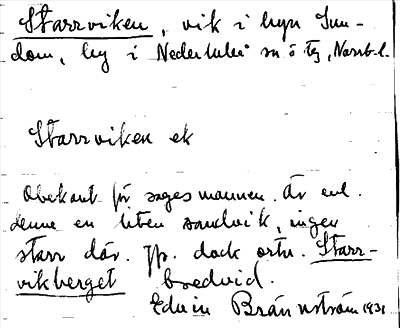 Starrviken, vik i byn Sun-
dom, by i Nederluleå sn ö tg, Norrb. l.
Starrviken ek
Obekant för sagesmannen. Är enl.
denne en liten sandvik, ingen
starr där. Jfr. dock ortn. Starr-
vikberget bredvid.
Edvin Brännström 1931